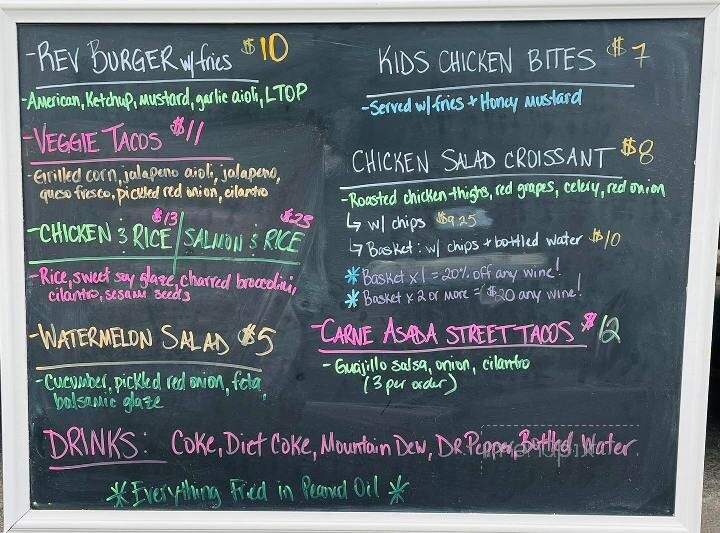 -REV BURGER w/fries $10
-American, Ketchup, mustard, garlic aioli, LTOP
-VEGGIE TACOS $11
-Grilled corn, jalapeno aioli, jalapeno,
queso fresco, pickled red onion, cilantro
-CHICKEN & RICE $13 | SALMON & RICE $23
-Rice, sweet soy glaze, charred broccolini,
cilantro, sesame seeds
-WATERMELON SALAD $5
-Cucumber, pickled red onion, feta,
balsamic glaze
KIDS CHICKEN BITES $7
-Served w/fries + Honey mustard
CHICKEN SALAD CROISSANT $8
-Roasted chicken thighs, red grapes, celery, red onion
↳ w/ chips $9.25
↳ Basket: w/ chips + bottled water $10
* Basket x 1 = 20% off any wine!
* Basket x 2 or more = $20 any wine!
-CARNE ASADA STREET TACOS $12
- Guajillo salsa, onion, cilantro
(3 per order)
DRINKS: Coke, Diet Coke, Mountain Dew, DR. Pepper, Bottled Water
* Everything Fried in Peanut Oil *